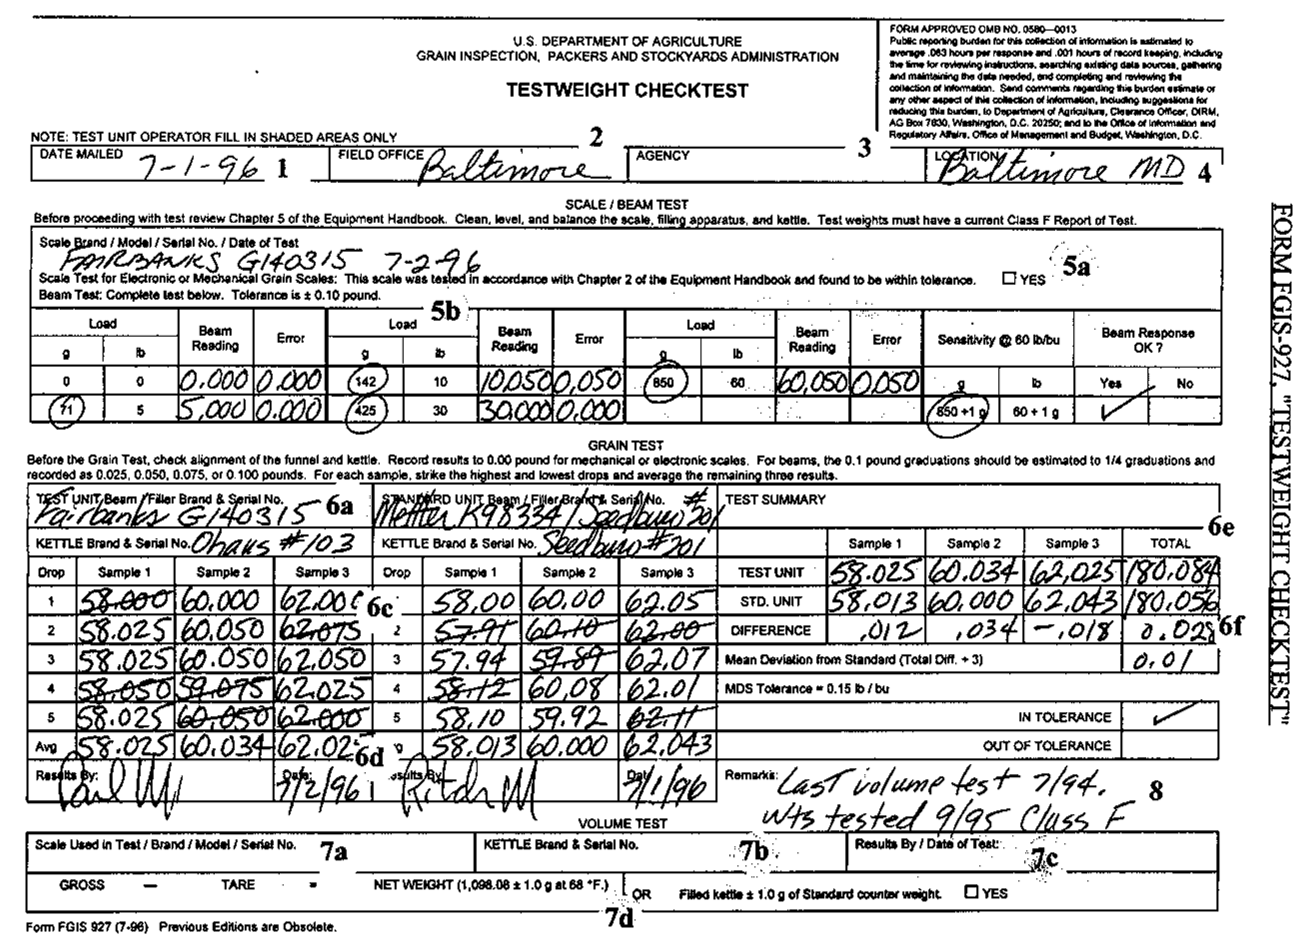 U.S. DEPARTMENT OF AGRICULTURE
GRAIN INSPECTION, PACKERS AND STOCKYARDS ADMINISTRATION
TESTWEIGHT CHECKTEST
FORM APPROVED OMB NO. 0580—0013
Public reporting burden for this collection of information is estimated to
average .083 hours per response and .001 hours of record keeping, including
the time for reviewing instructions, searching existing data sources, gathering
and maintaining the data needed, and completing and reviewing the
collection of information. Send comments regarding this burden estimate or
any other aspect of this collection of information, including suggestions for
reducing this burden, to Department of Agriculture, Clearance Officer, OIRM,
AG Box 7630, Washington, D.C. 20250; and to the Office of Information and
Regulatory Affairs, Office of Management and Budget, Washington, D.C.
NOTE: TEST UNIT OPERATOR FILL IN SHADED AREAS ONLY
2
3
DATE MAILED 7-1-96 1
FIELD OFFICE Baltimore
AGENCY
LOCATION Baltimore MD 4
SCALE / BEAM TEST
Before proceeding with test review Chapter 5 of the Equipment Handbook. Clean, level, and balance the scale, filling apparatus, and kettle. Test weights must have a current Class F Report of Test.
Scale Brand / Model / Serial No. / Date of Test
FAIRBANKS G140315 7-2-96
5a
Scale Test for Electronic or Mechanical Grain Scales: This scale was tested in accordance with Chapter 2 of the Equipment Handbook and found to be within tolerance. ☐ YES
Beam Test: Complete test below. Tolerance is ± 0.10 pound.
5b
Load Beam Reading Error Load Beam Reading Error Load Beam Reading Error Sensitivity @ 60 lb/bu Beam Response OK ?
g lb g lb g lb
0 0 0.000 0.000 142 10 10,050 0,050 850 60 60,050 0,050 g lb Yes No
71 5 5,000 0.000 425 30 30,000 0,000 850 +1 g 60 + 1 g ✓
GRAIN TEST
Before the Grain Test, check alignment of the funnel and kettle. Record results to 0.00 pound for mechanical or electronic scales. For beams, the 0.1 pound graduations should be estimated to 1/4 graduations and
recorded as 0.025, 0.050, 0.075, or 0.100 pounds. For each sample, strike the highest and lowest drops and average the remaining three results.
TEST UNIT Beam /Filler Brand & Serial No.
Fairbanks G140315 6a
STANDARD UNIT Beam / Filler Brand & Serial No.
Mettler K98334/Seedburo #201
TEST SUMMARY
6e
KETTLE Brand & Serial No. Ohaus #103
KETTLE Brand & Serial No. Seedburo #201
Sample 1 Sample 2 Sample 3 TOTAL
Drop Sample 1 Sample 2 Sample 3 Drop Sample 1 Sample 2 Sample 3
TEST UNIT 58.025 60.034 62,025 180.084
1 58.000 60.000 62.000 6c 58,00 60.00 62.05
STD. UNIT 58.013 60.000 62,043 180.056
2 58.025 60,050 62.075 2 57.91 60.10 62.00
DIFFERENCE .012 .034 -.018 0.028 6f
3 58.025 60.050 62,050 3 57.94 59.89 62.07
Mean Deviation from Standard (Total Diff. ÷ 3) 0.01
4 58.050 59.075 62.025 4 58.12 60,08 62.01
MDS Tolerance = 0.15 lb / bu
5 58.025 60,050 62.000 5 58,10 59.92 62.11
IN TOLERANCE ✓
Avg 58.025 60,034 62.025 58,013 60.000 62,043
6d
OUT OF TOLERANCE
Results By: Date: 7/2/96
Results By Date 7/1/96
Remarks: Last volume test 7/94.
Wts tested 9/95 Class F
8
VOLUME TEST
Scale Used in Test / Brand / Model / Serial No. 7a
KETTLE Brand & Serial No. 7b
Results By / Date of Test: 7c
GROSS — TARE = NET WEIGHT (1,098.08 ± 1.0 g at 68 °F.) OR Filled kettle ± 1.0 g of Standard counter weight. ☐ YES
7d
Form FGIS 927 (7-96) Previous Editions are Obsolete.
FORM FGIS-927, "TESTWEIGHT CHECKTEST"